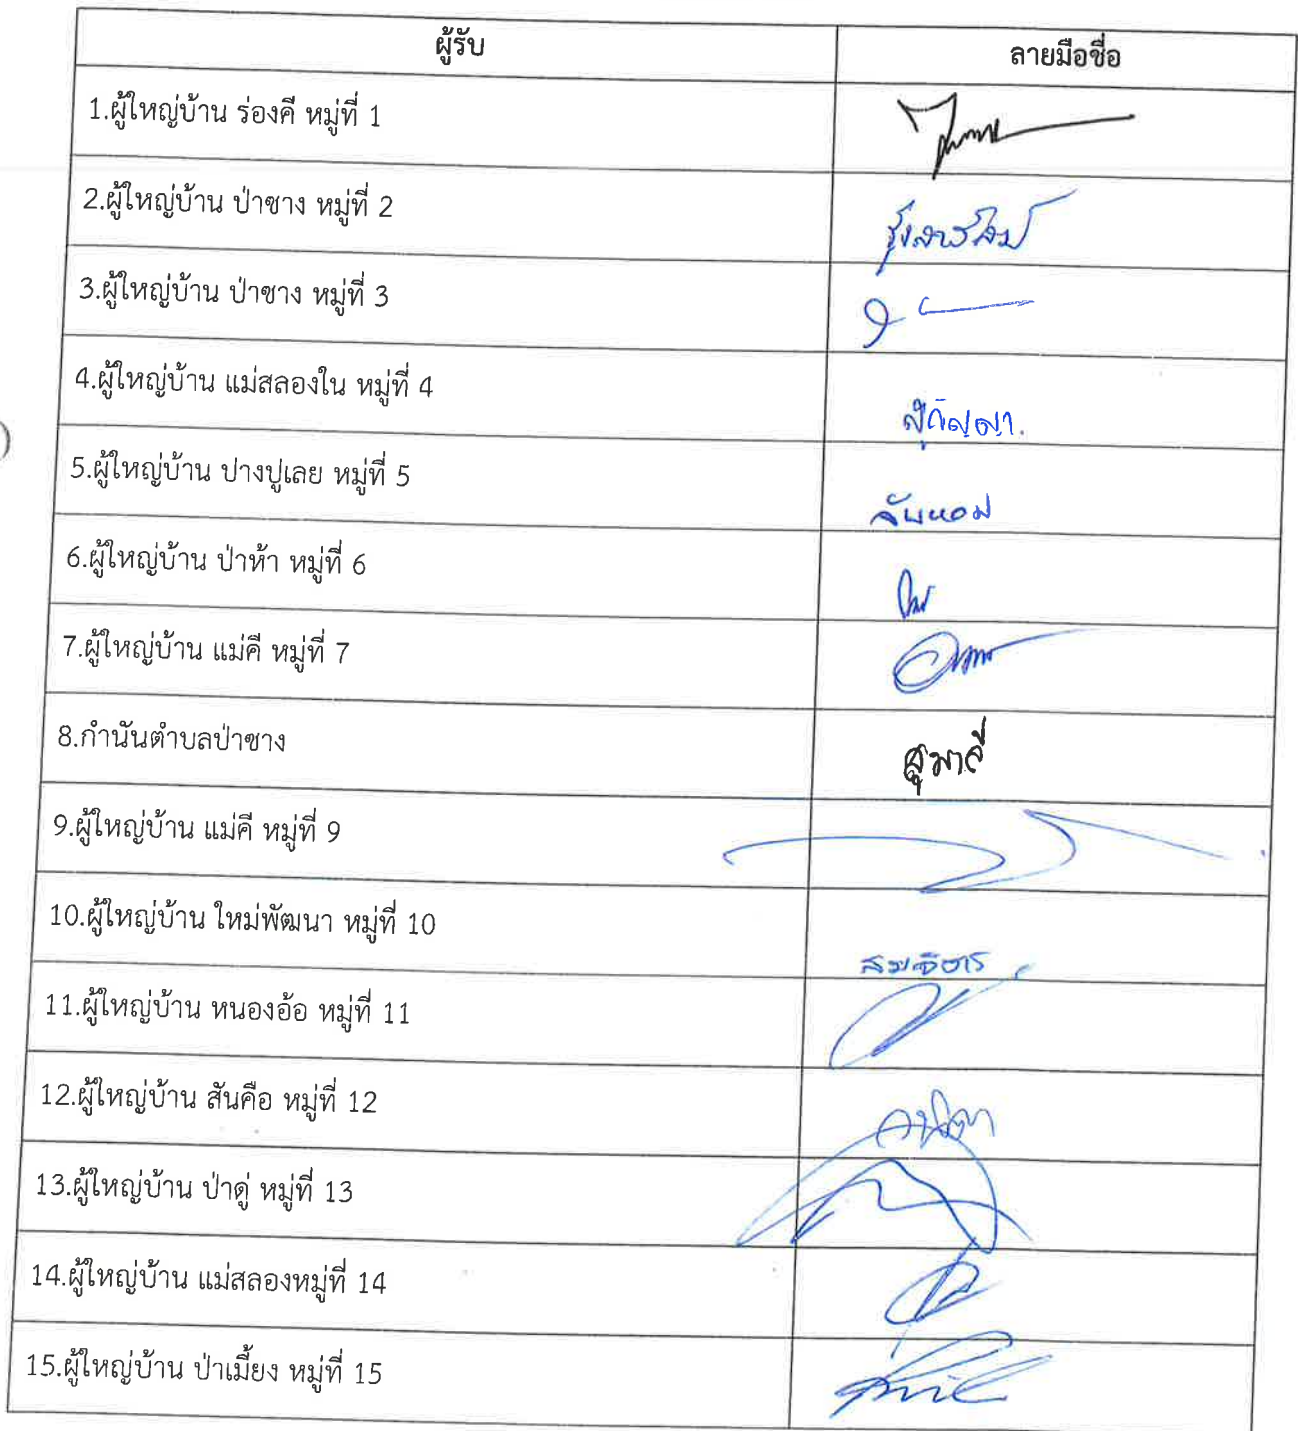 ผู้รับ ลายมือชื่อ
1.ผู้ใหญ่บ้าน ร่องคี หมู่ที่ 1
2.ผู้ใหญ่บ้าน ป่าซาง หมู่ที่ 2
3.ผู้ใหญ่บ้าน ป่าซาง หมู่ที่ 3
4.ผู้ใหญ่บ้าน แม่สลองใน หมู่ที่ 4
5.ผู้ใหญ่บ้าน ปางปูเลย หมู่ที่ 5
จันหอม
6.ผู้ใหญ่บ้าน ป่าห้า หมู่ที่ 6
7.ผู้ใหญ่บ้าน แม่คี หมู่ที่ 7
8.กำนันตำบลป่าซาง
สุมาลี
9.ผู้ใหญ่บ้าน แม่คี หมู่ที่ 9
10.ผู้ใหญ่บ้าน ใหม่พัฒนา หมู่ที่ 10
11.ผู้ใหญ่บ้าน หนองอ้อ หมู่ที่ 11
12.ผู้ใหญ่บ้าน สันคือ หมู่ที่ 12
13.ผู้ใหญ่บ้าน ป่าดู่ หมู่ที่ 13
14.ผู้ใหญ่บ้าน แม่สลองหมู่ที่ 14
15.ผู้ใหญ่บ้าน ป่าเมี้ยง หมู่ที่ 15